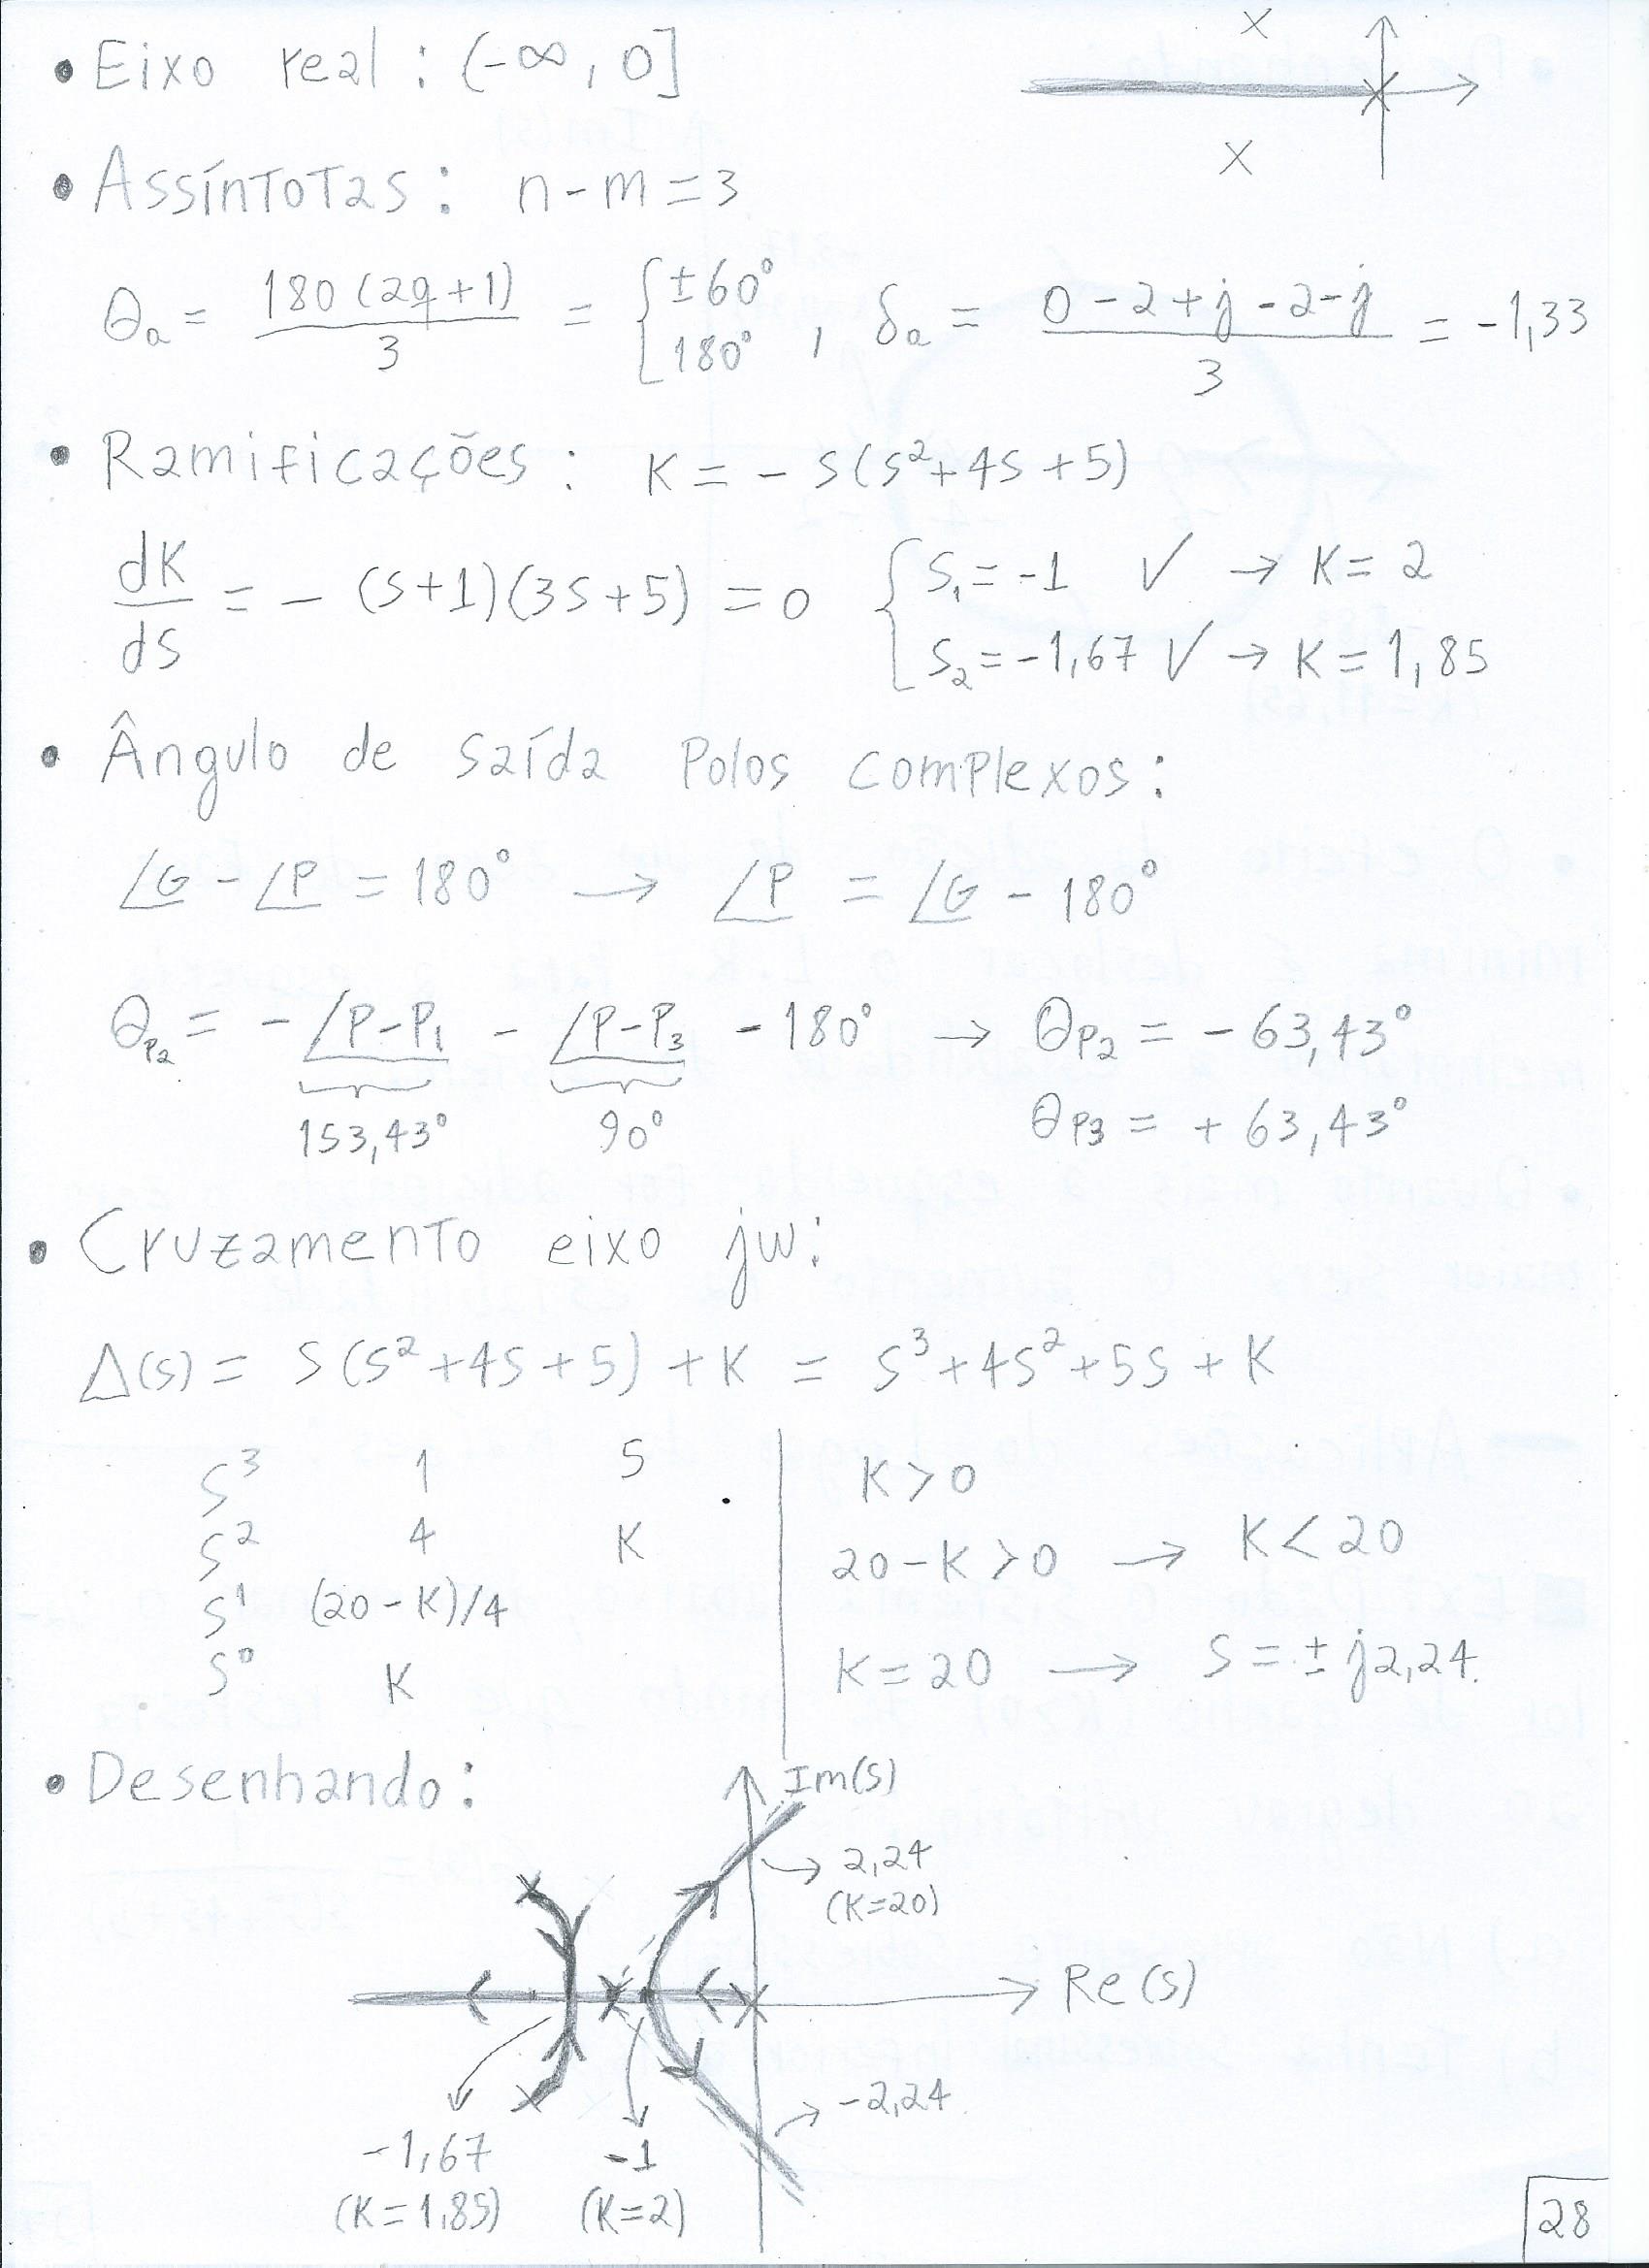 • Eixo real: (-∞, 0]
• Assíntotas: n-m=3
θa = 180(2q+1)/3 = { ±60° 180° , δa = (0-2+j-2-j)/3 = -1,33
• Ramificações: K = - s(s²+4s+5)
dK/ds = - (s+1)(3s+5) = 0 { s₁ = -1 ✓ → K = 2
s₂ = -1,67 ✓ → K = 1,85
• Ângulo de saída polos complexos:
∠G - ∠P = 180° → ∠P = ∠G - 180°
θp₂ = - ∠P-P₁ - ∠P-P₃ - 180° → θp₂ = - 63,43°
153,43° 90° θp₃ = + 63,43°
• Cruzamento eixo jw:
Δ(s) = s(s²+4s+5) + K = s³+4s²+5s+K
s³ 1 5 K>0
s² 4 K 20-K>0 → K<20
s¹ (20-K)/4
s⁰ K K=20 → s = ±j2,24.
• Desenhando:
Im(s)
2,24
(K=20)
Re(s)
-2,24
-1,67 -1
(K=1,85) (K=2)
28